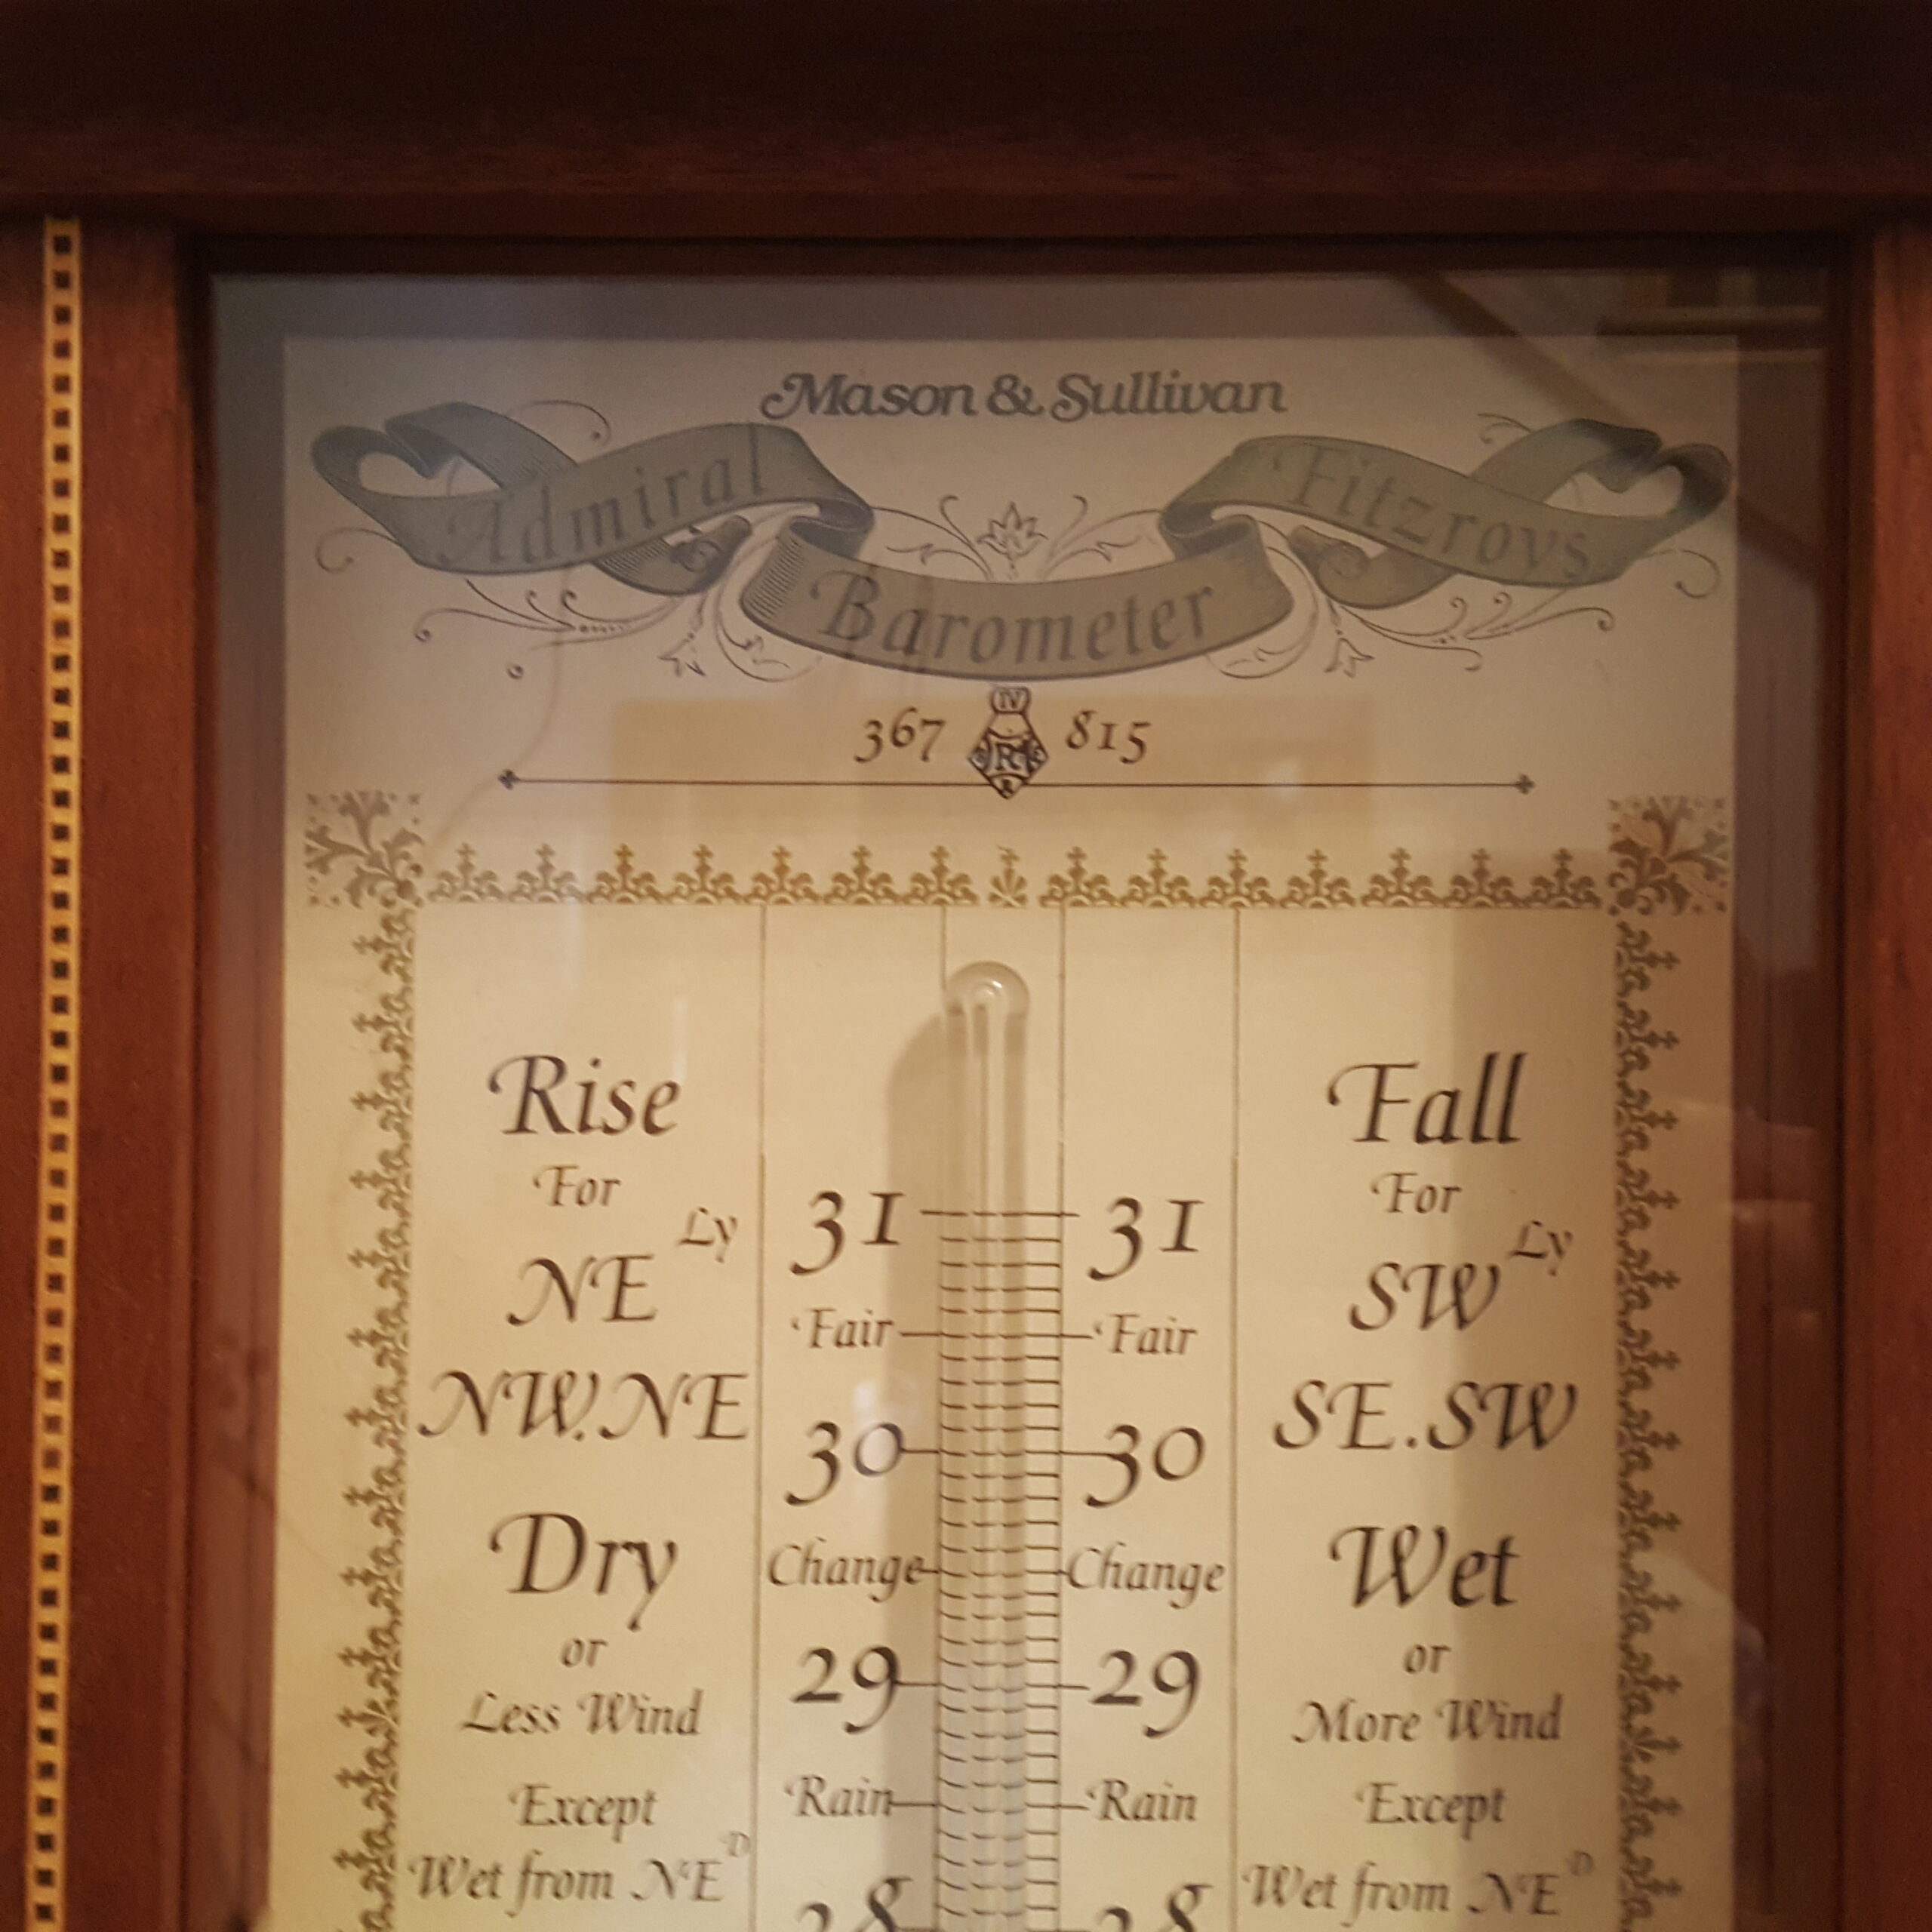 Mason & Sullivan
Admiral Fitzroys
Barometer
367 IV R 815
Rise Fall
For For
Ly Ly
NE SW
NW.NE SE.SW
Dry Wet
or or
Less Wind More Wind
Except Except
Wet from NE D Wet from NE D
31 31
Fair Fair
30 30
Change Change
29 29
Rain Rain
28 28